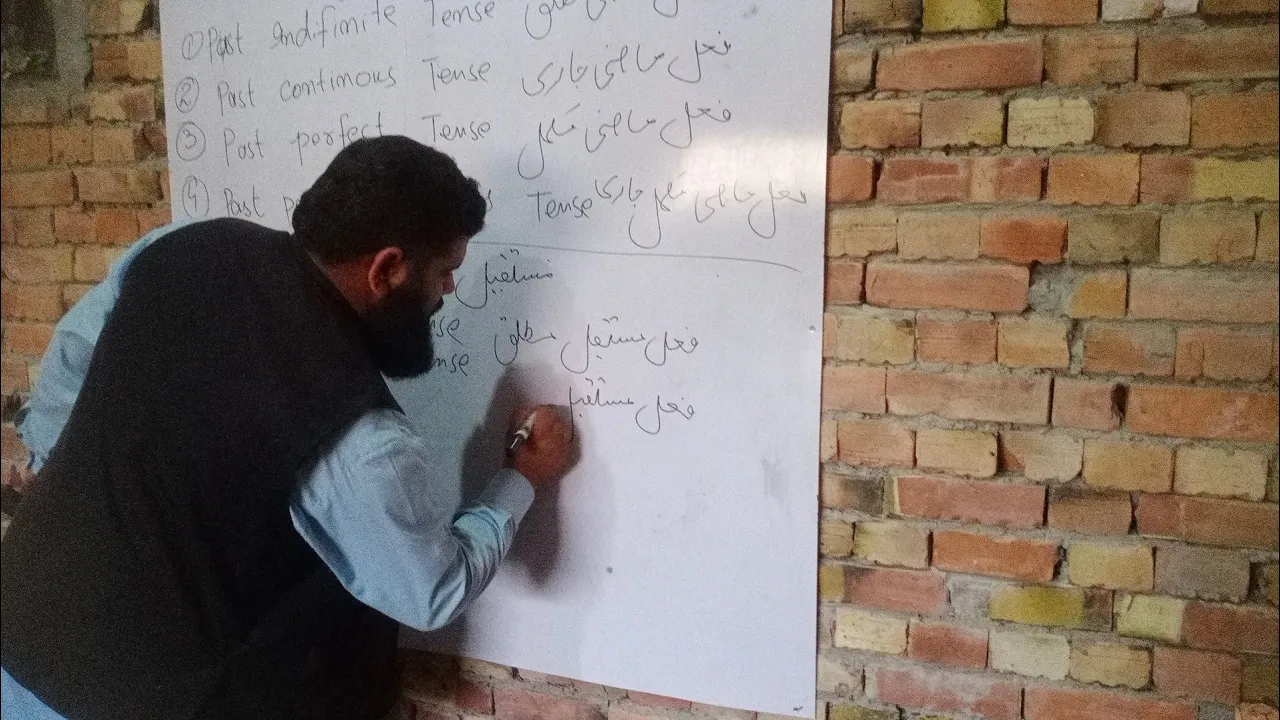 ① Past Indifinite Tense
② Past continous Tense فعل ماضی جاری
③ Past perfect Tense فعل ماضی مکمل
④ Past Tense فعل ماضی مکمل جاری
مستقبل
فعل مستقبل مطلق
فعل مستقبل